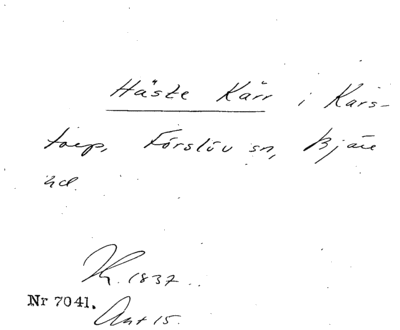 Häste Kärr i Kars-
torp, Förslöv sn, Bjäre
hd.
K. 1837.
Nr 7041.
Akt 15.